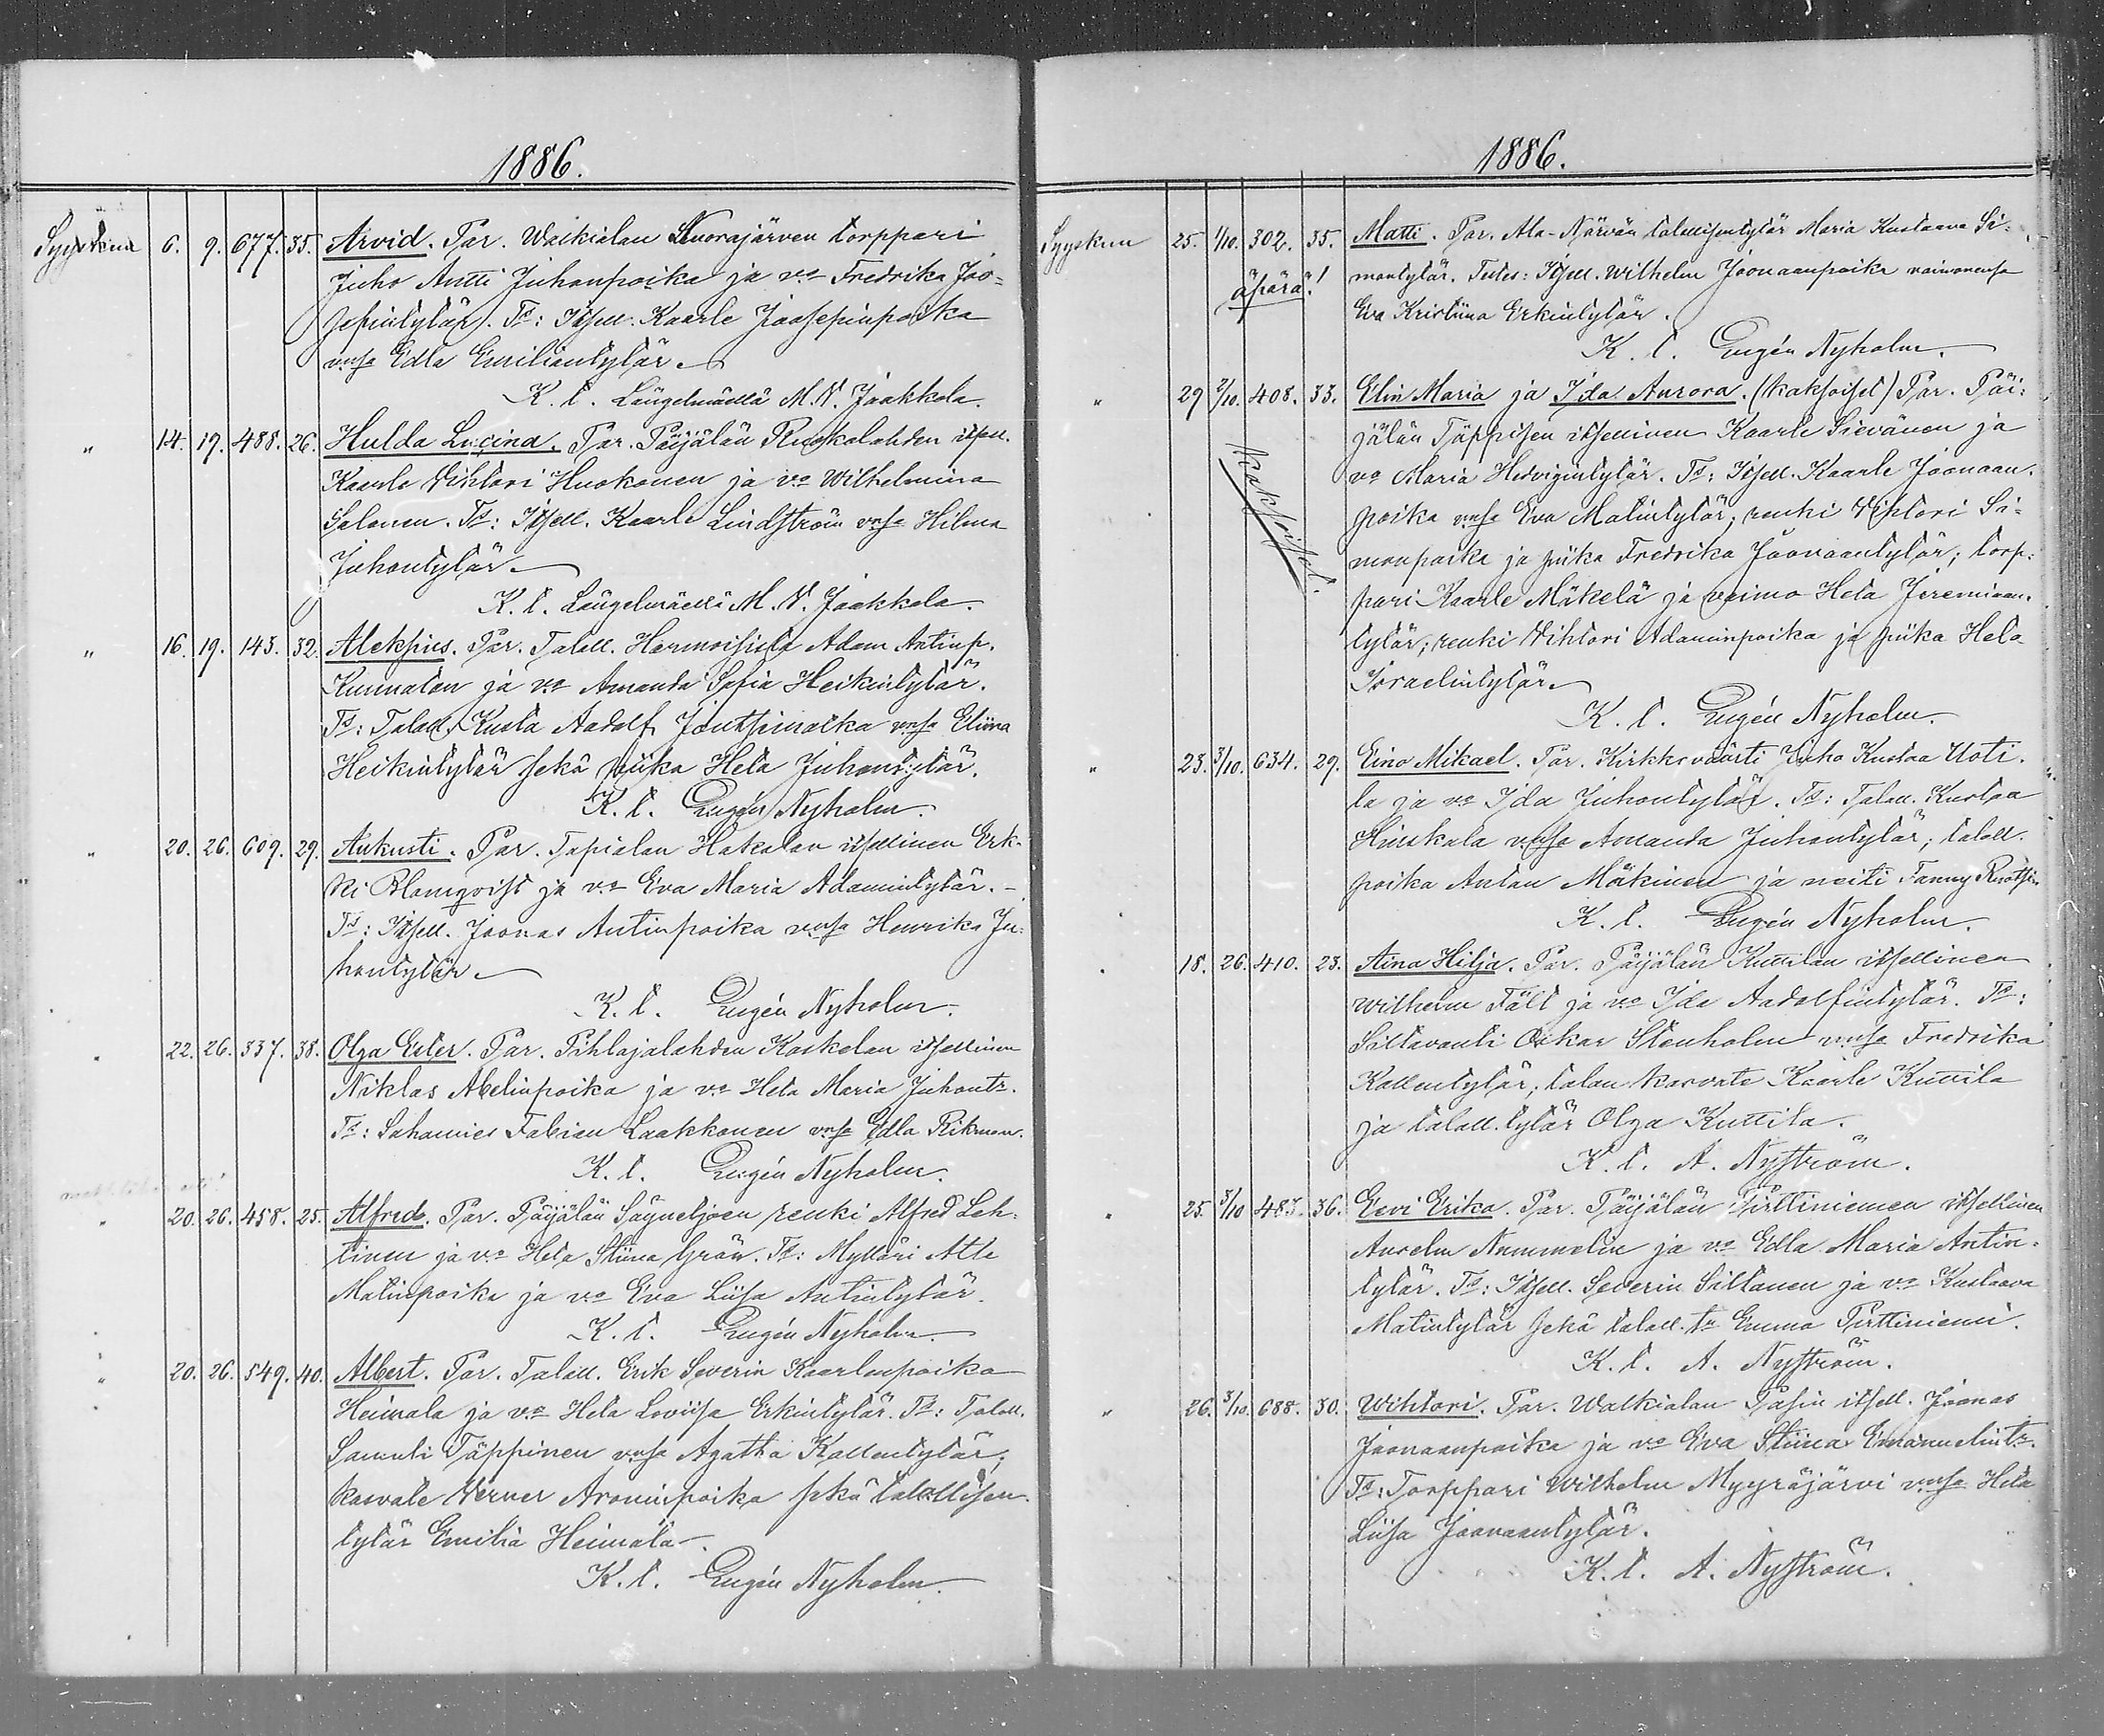 1886.
Syyskuu 6. 9. 677. 35. Arvid. Par. Waikialan Nuorajärven torppari
Juho Antti Juhonpoika ja vo Fredrika Joo-
sefintytär. Ts: Itsell. Kaarle Joosepinpoika
vnsa Edla Emiliantytär.
K. t. Längelmäellä M. N. Jaakkola.
" 14. 19. 488. 26. Hulda Lucina. Par. Päijälän Ruokolahden itsell.
Kaarle Vihtori Huokonen ja vo Wilhelmina
Salonen. Ts: Itsell. Kaarle Lindström vnsa Hilma
Juhontytär.
K. t. Längelmäellä M. N. Jaakkola.
" 16. 19. 143. 32. Aleksius. Par. Talall. Adam Antinp.
ja vo Amanda Sofia Heikintytär.
Ts: Talall. Kusta Aadolf vnsa Eliina
Heikintytär sekä piika Heta Juhontytär.
K. t. Eugén Nyholm.
" 20. 26. 609. 29. Aukusti. Par. Tapialan Hakalan itsellinen Erk-
ki Blomqvist ja vo Eva Maria Adamintytär. -
Ts: Itsell. Joonas Antinpoika vnsa Henrika Ju-
hontytär
K. t. Eugén Nyholm.
" 22. 26. 337. 38. Olga Ester. Par. Pihlajalahden Koskelan itsellinen
Niklas Abelinpoika ja vo Heta Maria Juhontr.
Ts: Fabian Laakkonen vnsa Edla Rikman.
K. t. Eugén Nyholm.
" 20. 26. 458. 25. Alfred. Par. Päijälän Säynetjoen renki Alfred Leh-
tinen ja vo Heta Stiina Grön. Ts: Mylläri Atle
Matinpoika ja vo Eva Liisa Antintytär.
K. t. Eugén Nyholm.
" 20. 26. 549. 40. Albert. Par. Talall. Erik Severin Kaarlenpoika
Heimala ja vo Heta Loviisa Erkintytär. Ts: Talall.
Samuli Täppinen vnsa Agatha Kallentytär,
kasvate Verner Aroninpoika sekä talollisen
tytär Emilia Heimala.
K. t. Eugén Nyholm.
1886.
Syyskuu 25. 1/10. 302. 35. Matti. Par. Ala-Närvän talollisentytär Maria Kustaava Si-
äpärä! montytär. Todis: Itsell. Wilhelm Joonaanpoika vaimonensa
Eva Kristiina Erkintytär.
K. t. Eugén Nyholm.
" 29 2/10. 408. 33. Elin Maria ja Ida Aurora. (kaksoiset) Par. Päi-
kaksoiset. jälän Täppisen itsellinen Kaarle Sievänen ja
vo Maria Hedvigintytär. Ts: Itsell. Kaarle Joonaan-
poika vnsa Eva Matintytär; renki Vihtori Si-
monpoika ja piika Fredrika Joonaantytär; torp-
pari Kaarle Mäkelä ja vaimo Heta Jeremiaan-
tytär; renki Vihtori Adaminpoika ja piika Heta
Israelintytär.
K. t. Eugén Nyholm.
" 23. 3/10. 634. 29. Eino Mikael. Par. Kirkkoväärti Juho Kustaa Uoti-
la ja vo Ida Juhontytär. Ts: Talall. Kustaa
Hiuskala vnsa Amanda Juhontytär; talall.
poika Antan Mäkinen ja neiti Fanny
K. t. Eugén Nyholm.
" 18. 26. 410. 23. Aina Hilja. Par. Päijälän Kuttilan itsellinen
Wilhelm Fält ja vo Ida Aadolfintytär. Ts:
Siltavouti Oskar Stenholm vnsa Fredrika
Kallentytär; talon kasvate Kaarle Kuttila
ja talall. tytär Olga Kuttila.
K. t. A. Nyström.
" 25. 3/10 483. 36. Eevi Erika. Par. Päijälän Pirttiniemen itsellinen
Anselm Nummelin ja vo Edla Maria Antin-
tytär. Ts: Itsell. Severin Siltanen ja vo Kustaava
Matintytär sekä talall. tr Emma Pirttiniemi.
K. t. A. Nyström.
" 26. 3/10. 688. 30. Wihtori. Par. Walkialan Pasin itsell. Joonas
Joonaanpoika ja vo Eva Stiina Emanuelintr.
Ts: Torppari Wilhelm Myyräjärvi vnsa Heta
Liisa Joonaantytär.
K. t. A. Nyström.